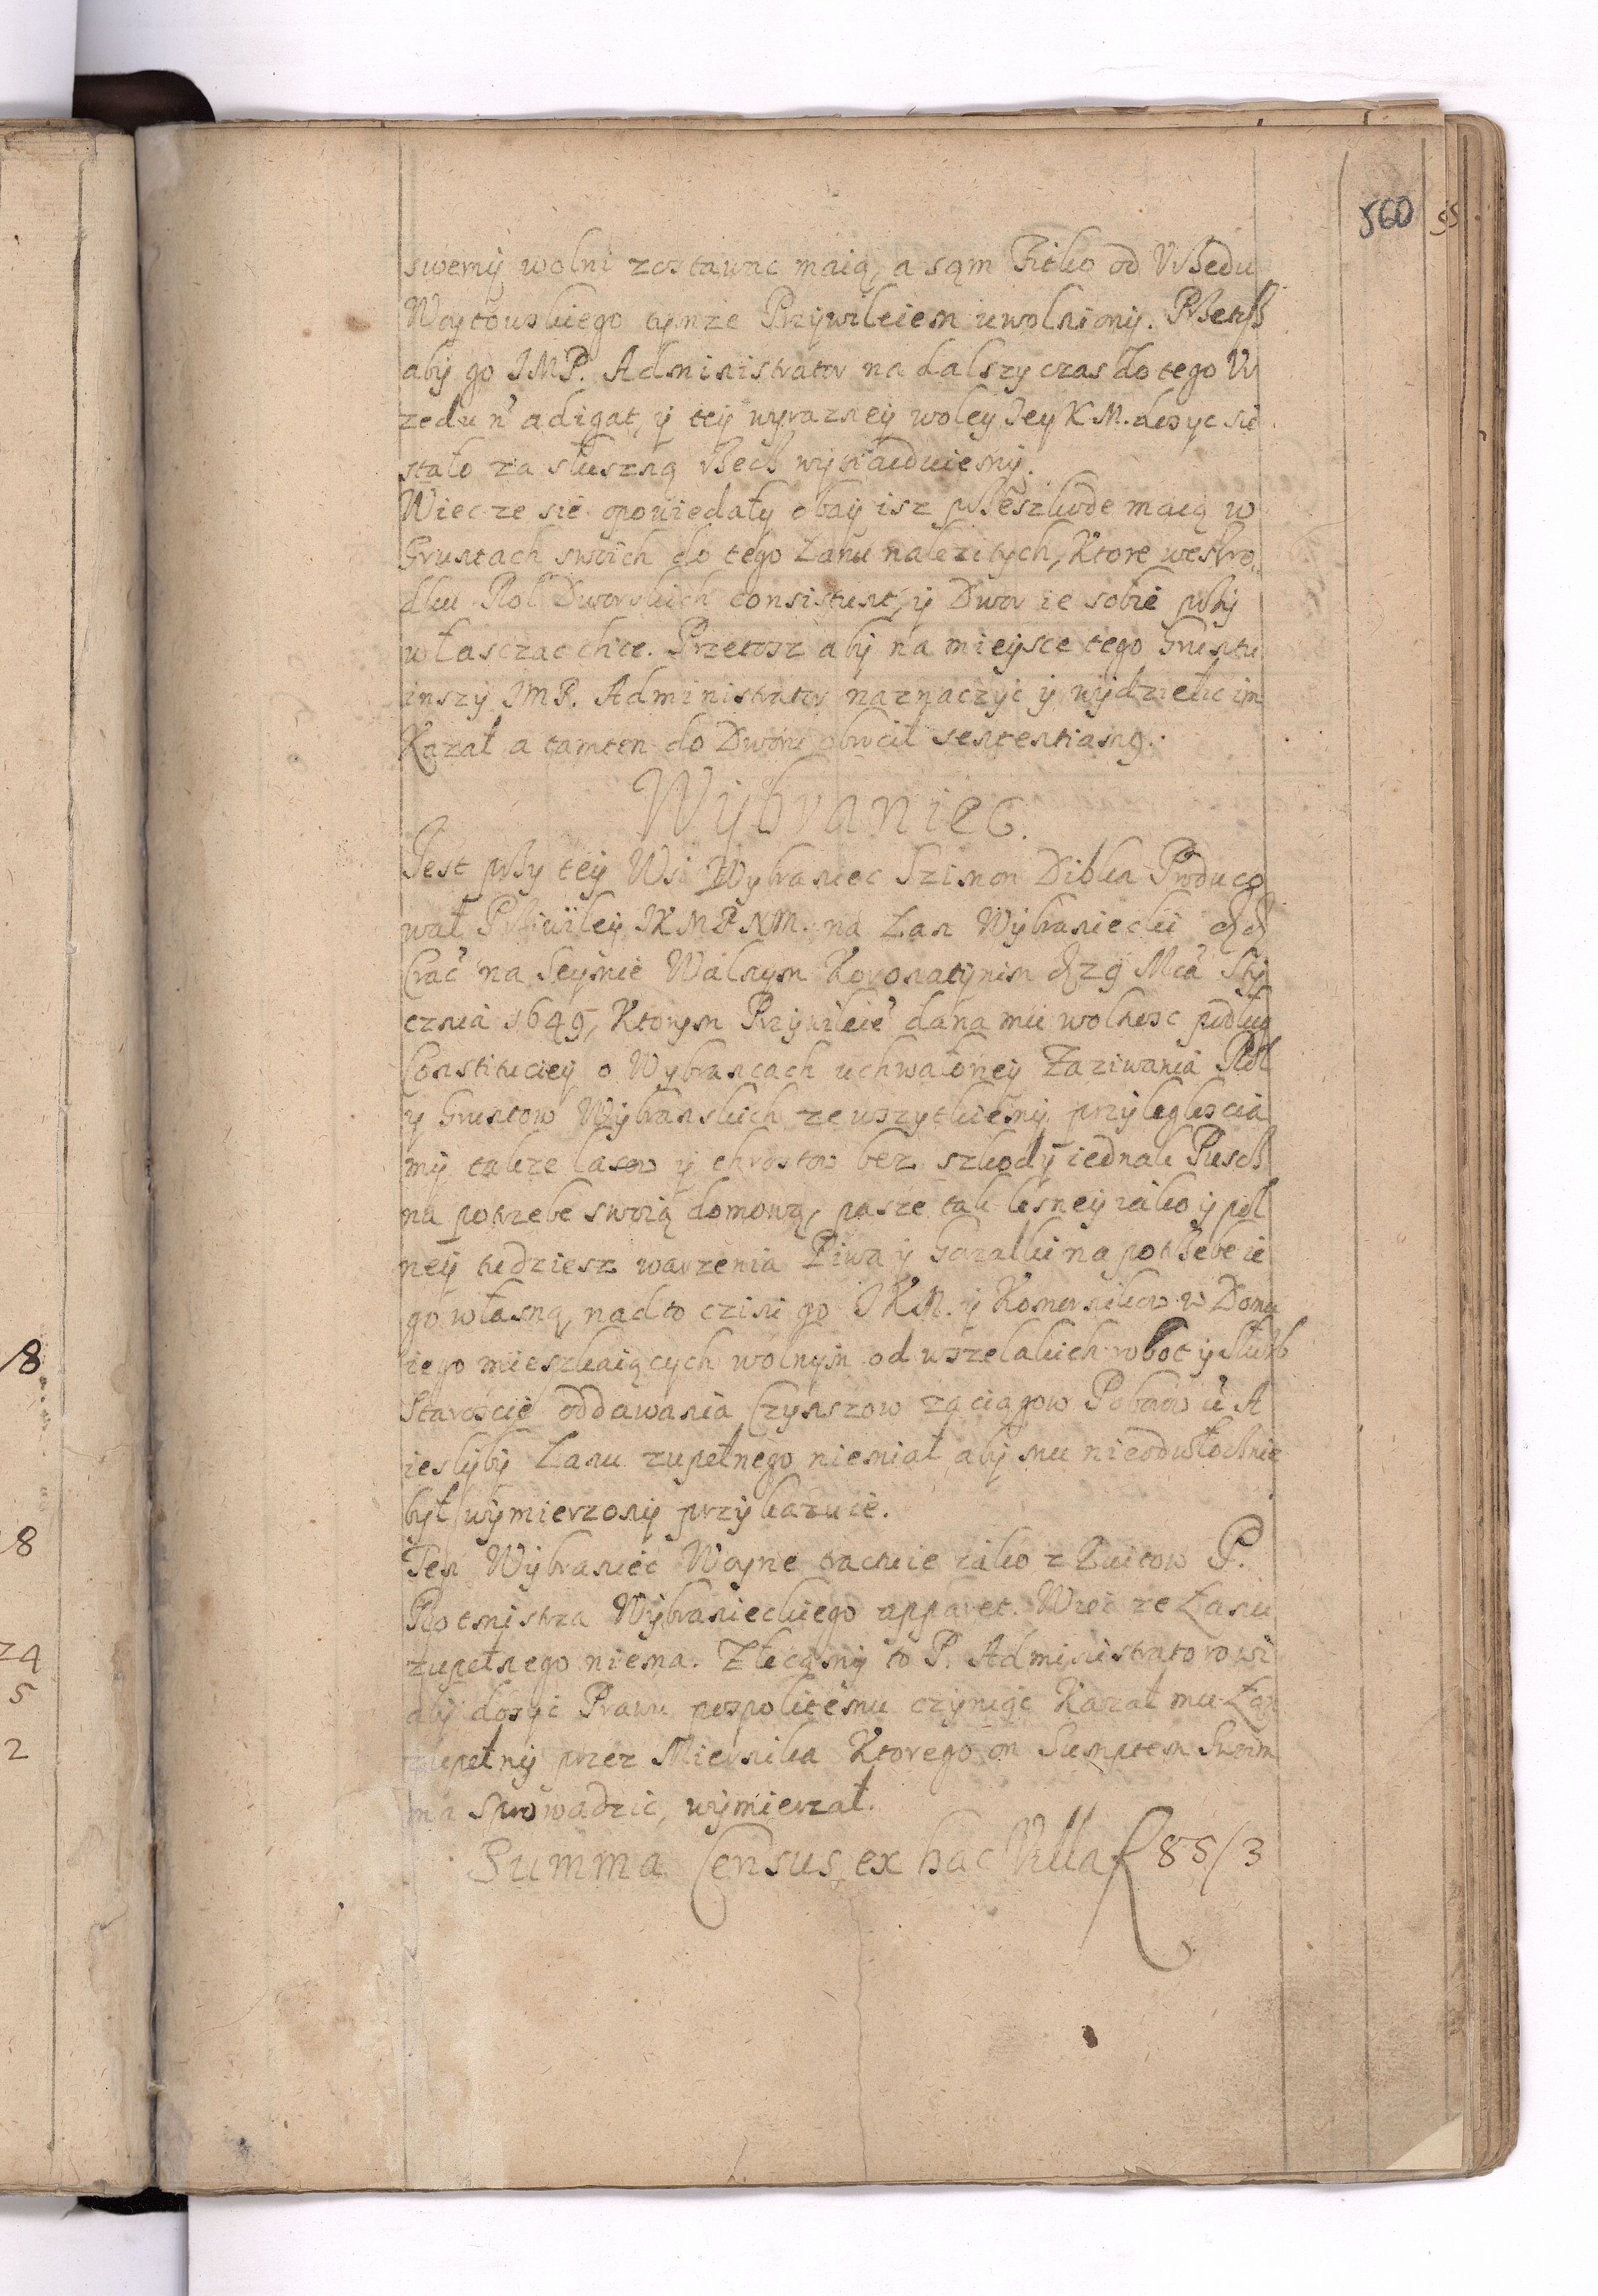 560
swemy wolni zostawac maią, a sąm Fitko od Vrzedu
Woytowskiego tymze Przywileiem uwolniony. Przeto
aby go JMP. Administrator na dalszy czas do tego V
rzedu n̄ adigat, y tey wyrazney woley Jey K M. dosyc sie
stało za słuszną Rzecz wynaiduiemy.
Wiec ze sie opowiedały obay isz przeszkode maią w
Gruntach swoich do tego Łanu nalezitych, Ktore weszro
dku Rol Dworskich consistunt, y Dwor ie sobie przy
własczac chce. Przetosz aby na mieysce tego Gruntu
inszy JMP. Administrator naznaczyc y wydzielic im
Kazał a tamten do Dworu obrocił sententiamy.
Wybraniec.
Jest przy tey Wsi Wybraniec Szimon Dibka Produco
wał Przwiley JKMPNM. na Łan Wybraniecki
Crac̄ na Seymie Walnym Koronatynim 29 Mca Sty
cznia 1649, Ktorym Przywileie dana mu wolnosc podług
Constituciey o Wybrancach uchwaloney Zaziwania Rol
y Gruntow Wybranskich ze wszytkiemy przylegloscia
my takze lasow y chrostow bez szkody iednak Puscz
na potrzebe swoią domową, pasze tak lesney iako y pol
ney tudziesz warzenia Piwa y Gorzalki na potrzebe ie
go własną, nadto czini go JKM. y Komornikow w Domu
iego mieszkaiących wolnym od wszelakich robot y służb
Staroscie oddawania Czynszow zaciągow Poborow A
iesliby Łanu zupełnego niemiał aby mu nieodwłocznie
był wymierzony przykazuie.
Ten Wybraniec Woyne tractuie iako z Kwitow P.
Rotmistrza Wybranieckiego apparet. Wiec ze Łanu
zupełnego niema. Zlecamy to P. Administratorowi
aby dosyc Prawu pospolitemu czyniąc Kazał mu Łan
zupełny przez Miernika Ktorego on Sumptem Swoim
ma sprowadzic, wymierzał.
Summa Census ex hac Villa f 85/3
8
8
24
5
2